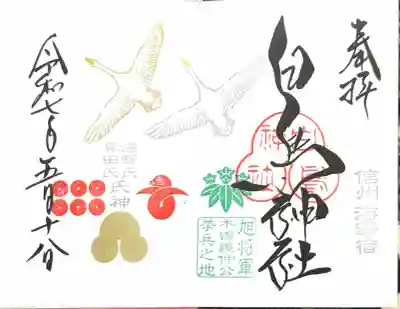 奉拝
信州 海野宿
白鳥神社
白鳥神社
旭将軍
木曽義仲公
挙兵之地
海野氏
真田氏
氏神
令和七年五月十八日